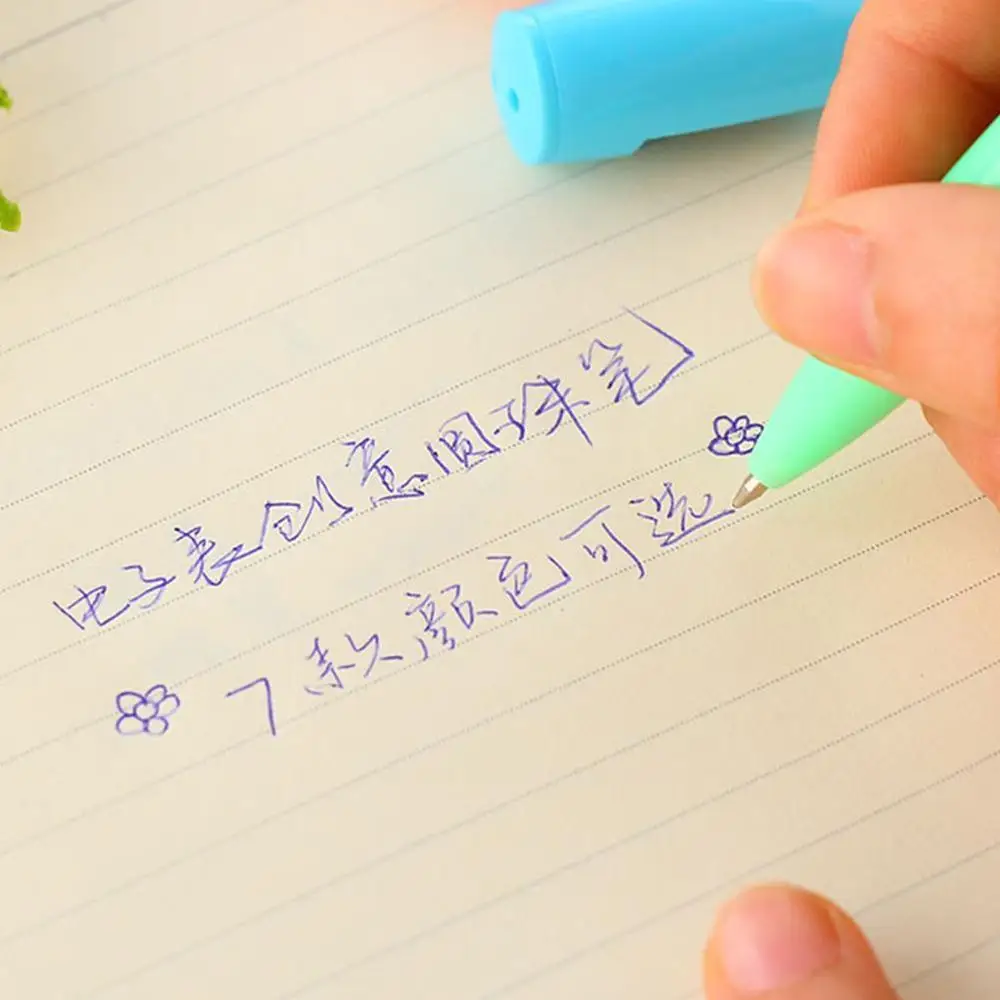 电子表创意圆子珠笔
7款颜色可选